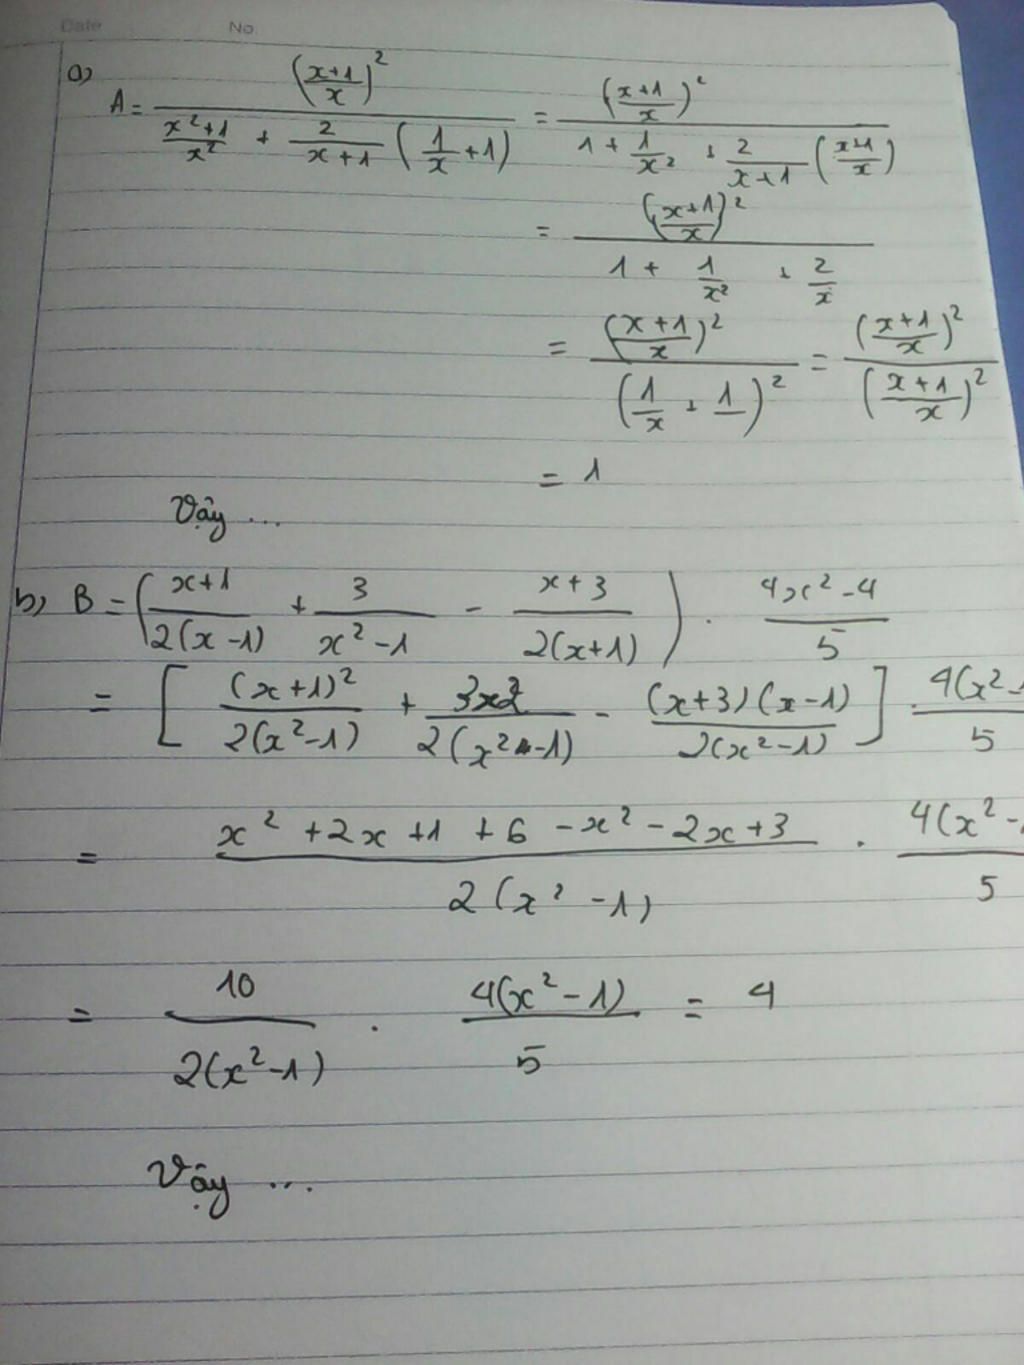 Date No.
a)
A = ((x+1)/x)² / ((x²+1)/x² + 2/(x+1) (1/x + 1)) = ((x+1)/x)² / (1 + 1/x² + 2/(x+1) ((x+1)/x))
= ((x+1)/x)² / (1 + 1/x² + 2/x)
= ((x+1)/x)² / (1/x + 1)² = ((x+1)/x)² / ((x+1)/x)²
= 1
Vậy ...
b) B = ((x+1)/(2(x-1)) + 3/(x²-1) - (x+3)/(2(x+1))) . (4x²-4)/5
= [(x+1)²/(2(x²-1)) + 3x2/(2(x²-1)) - (x+3)(x-1)/(2(x²-1))] . 4(x²-/5
= (x² + 2x + 1 + 6 - x² - 2x + 3)/(2(x²-1)) . 4(x²-/5
= 10/(2(x²-1)) . 4(x²-1)/5 = 4
Vậy ...